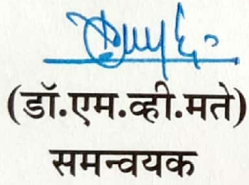 (डॉ.एम.व्ही.मते)
समन्वयक